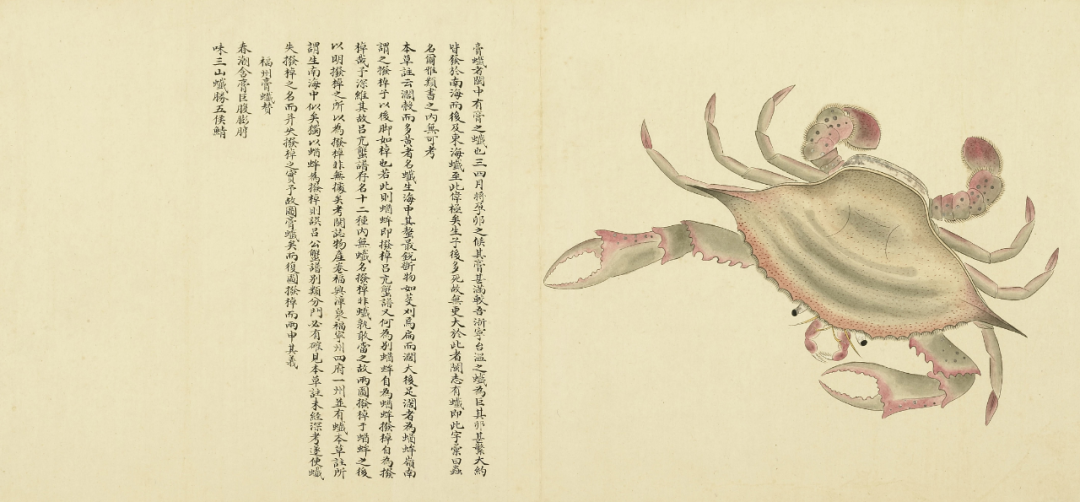 膏蠘方閩中有膏之蠘也三四月將孕卵之候其膏甚滿較吾浙寧台溫之蠘為巨其卵甚繁大約
皆發於南海而後及東海蠘至此偉極矣生子後多死故無更大於此者閩志有蠘即此字彙曰蟲
名爾雅類書之內無可考
本草註云濶殼而多黃者名蠘生海中其螯最銳斷物如芟刈焉扁而濶大後足濶者為蝤蛑嶺南
謂之撥棹子以後脚如棹也若此則蝤蛑即撥棹呂亢蟹譜又何為別蝤蛑自為蝤蛑撥棹自為撥
棹哉予深維其故呂亢蟹譜存名十二種內無蠘名撥棹非蠘孰敢當之故兩圖撥棹于蝤蛑之後
以明撥棹之所以為撥棹非無據矣考閩誌物產卷福興漳泉福寧州四府一州並有蠘本草註所
謂生南海中似矣獨以蝤蛑為撥棹則誤呂公蟹譜別類分門必有確見本草註未經深考遂使蠘
失撥棹之名而并失撥棹之實予故圖膏蠘矣而復圖撥棹而兩申其義
福州膏蠘贊
春潮含膏巨腹膨脝
味三山蠘勝五侯鯖